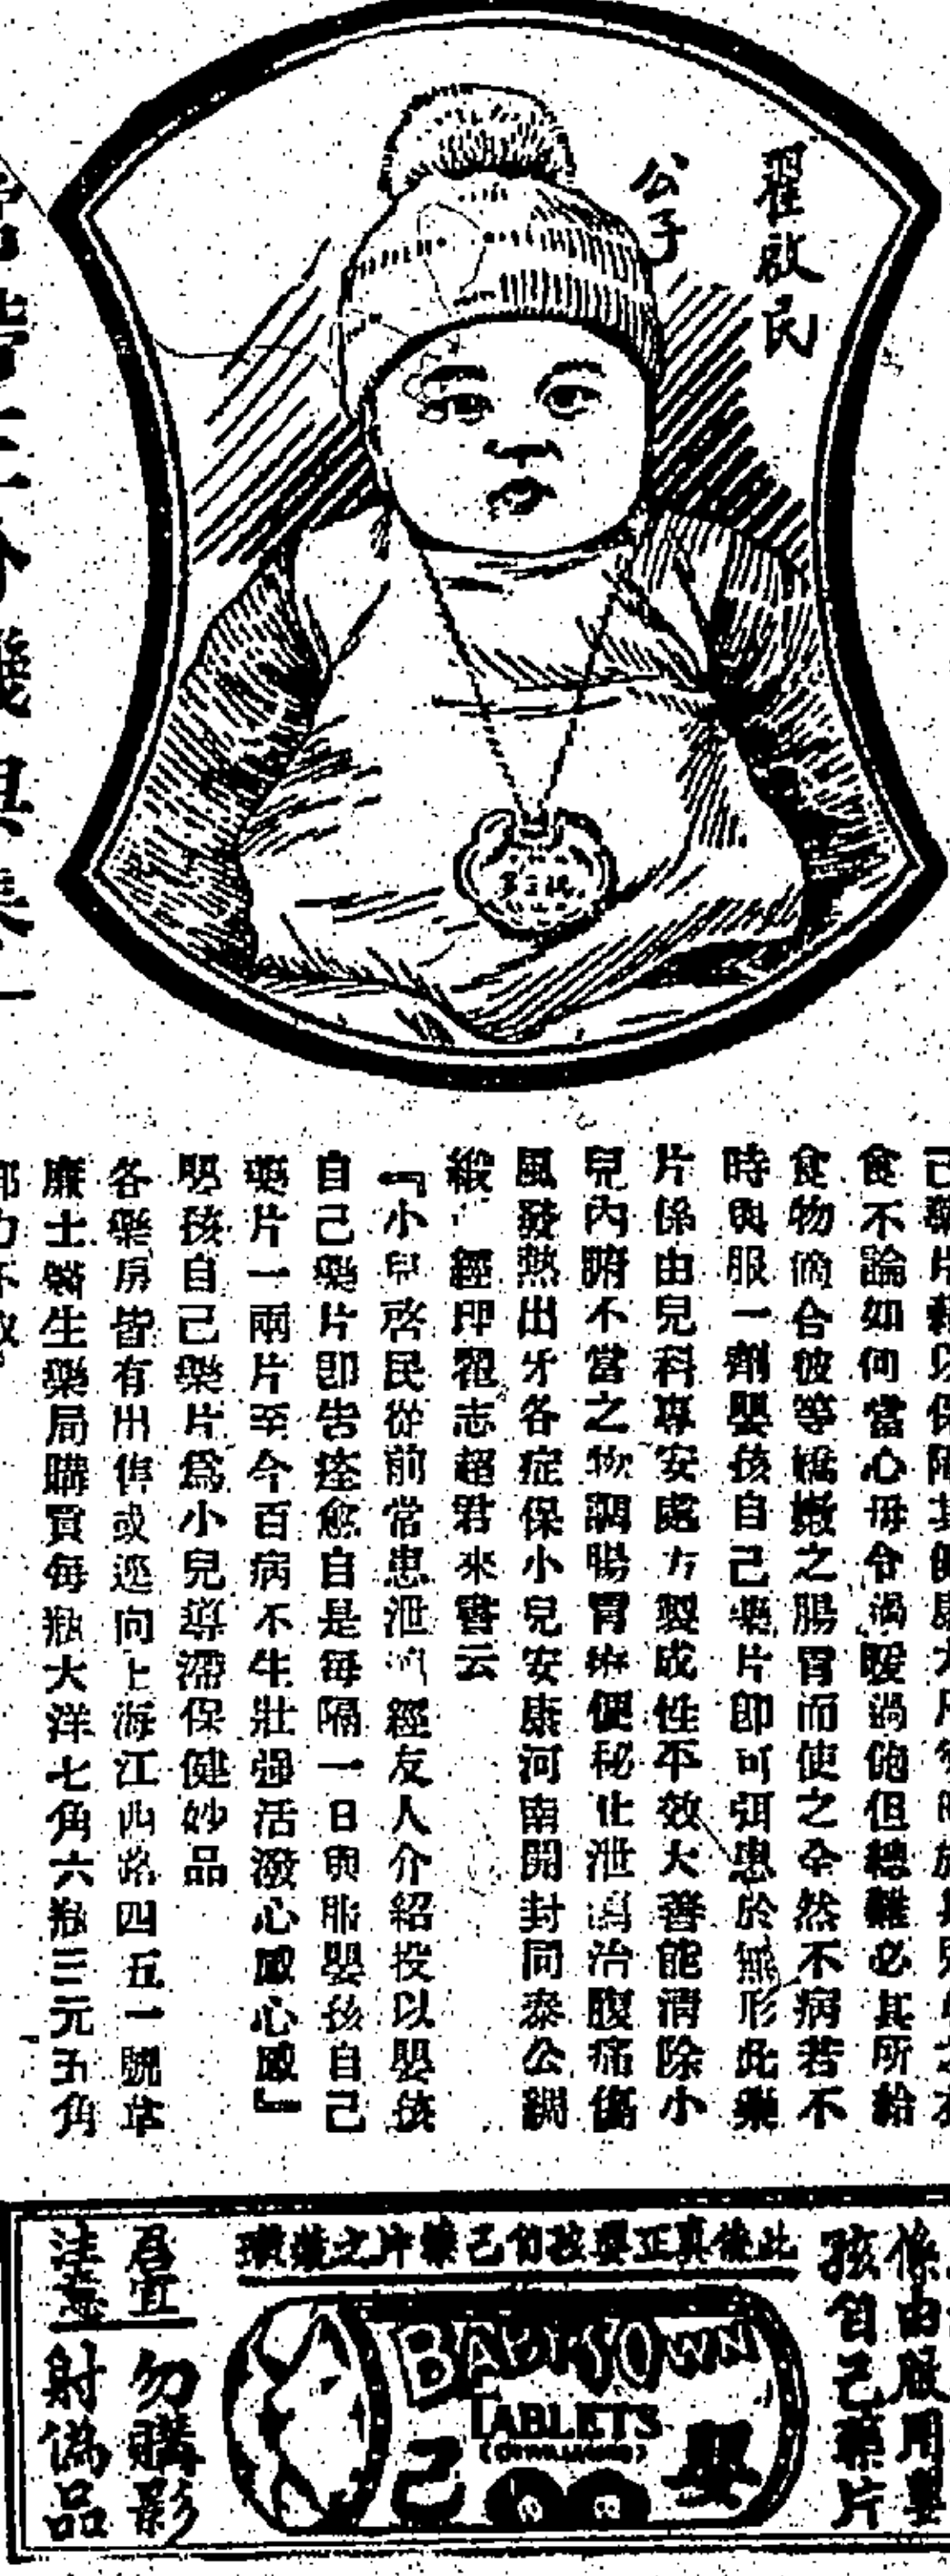 翟啟民
公子
食不論如何當心毋令過暖過飽但總難必其所給
食物適合彼等嬌嫩之腸胃而使之全然不病若不
時與服一劑嬰孩自己藥片即可弭患於無形此藥
片係由兒科專安處方製成性平效大善能清除小
兒內腑不當之物調腸胃 便秘止泄瀉治腹痛傷
風發熱出牙各症保小兒安康河南開封同泰公綢
緞 經理翟志超君來書云
『小兒啓民從前常患泄瀉經友人介紹投以嬰孩
自己藥片即告痊愈自是每隔一日與服嬰孩自己
藥片一兩片至今百病不生壯强活潑心感心感』
嬰孩自己藥片爲小兒導滯保健妙品
各藥房皆有出售或逕向上海江西路四五一號韋
廉士醫生藥局購買每瓶大洋七角六瓶三元五角
郵力不取
係由服用嬰
孩自己藥片
此係真正嬰孩自己藥片之裝璜
BABY'S OWN
TABLETS
嬰
己
君宜 勿購影
注意 射偽品